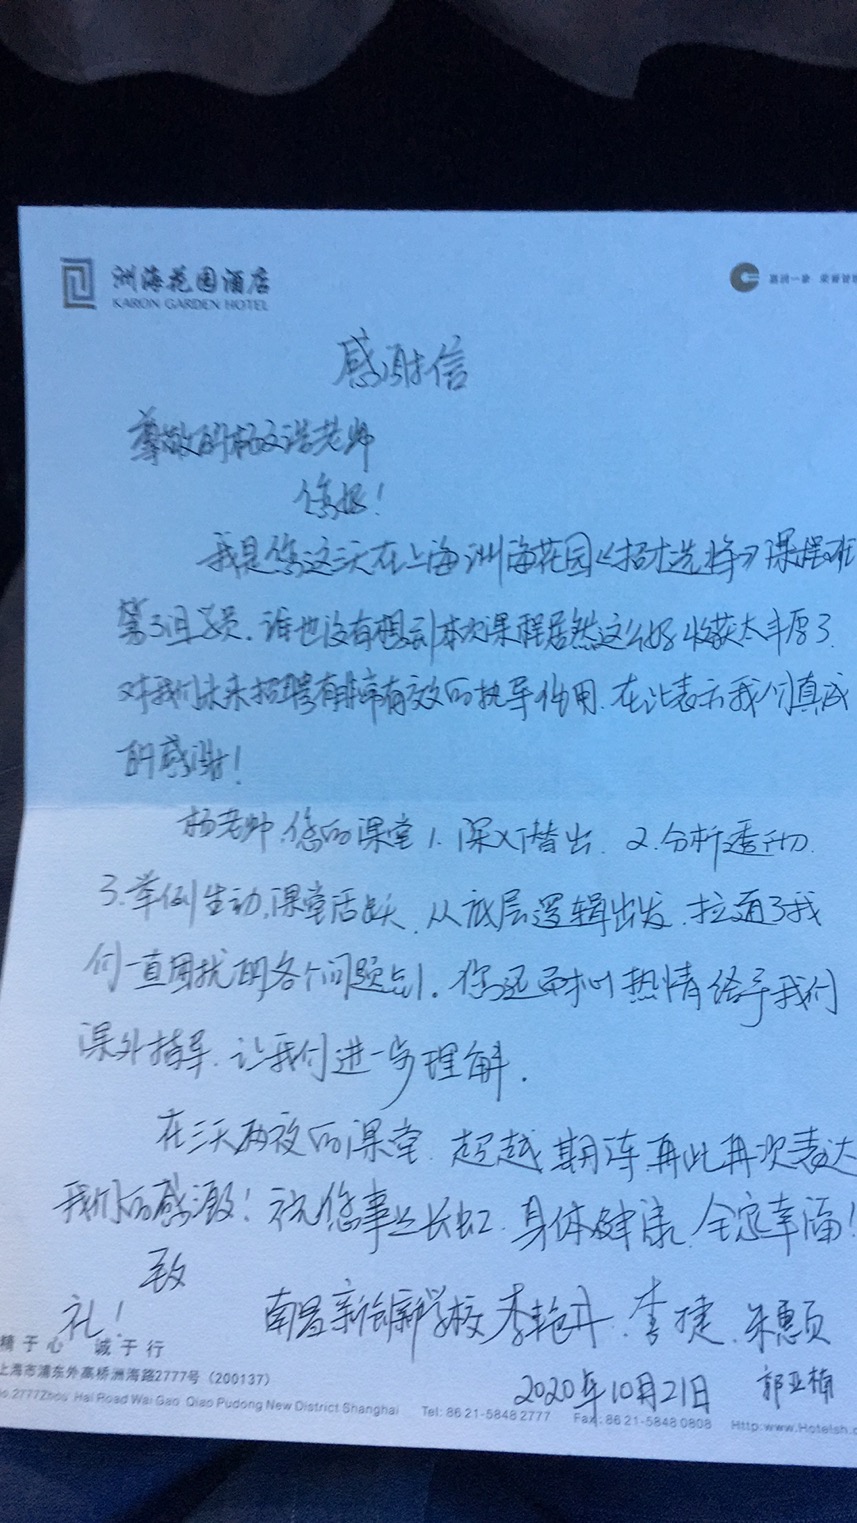 洲海花园酒店
KARON GARDEN HOTEL
感谢信
尊敬的杨文浩老师
您好！
我是您这三天在上海洲海花园《招才选将》课程班
第3组学员，谁也没有想到本次课程居然这么好收获太丰厚了.
对我们未来招聘有非常有效的执导作用.在此表示我们真诚
的感谢！
杨老师,您的课堂1.深入浅出. 2.分析透彻.
3.举例生动,课堂活跃.从底层逻辑出发.拉通了我
们一直困扰的各个问题点.您还耐心热情给予我们
课外指导.让我们进一步理解.
在三天两夜的课堂.超越期待再此再次表达
我们的感激！祝您事业长虹.身体健康.全家幸福！
致
礼！
南昌新创新学校李艳丹.李捷.朱惠贞
郭亚楠
2020年10月21日
精于心 诚于行
上海市浦东外高桥洲海路2777号（200137）
No.2777Zhou Hai Road Wai Gao Qiao Pudong New District Shanghai Tel: 86 21-5848 2777 Fax: 86 21-5848 0808 Http:www.Hotelsh.c